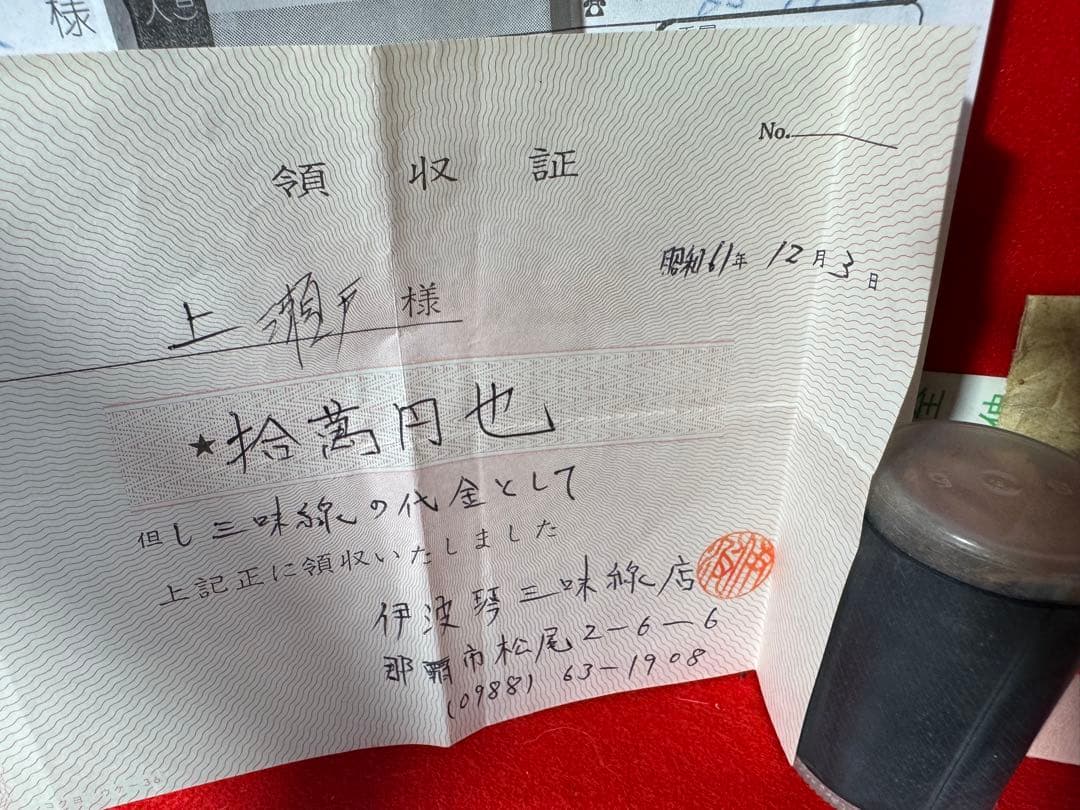 様
No.
領収証
昭和61年12月3日
上瀬戸様
★拾萬円也
但し三味線の代金として
上記正に領収いたしました
伊波琴三味線店
那覇市松尾2-6-6
(0988) 63-1908
コクヨ ウケ-36